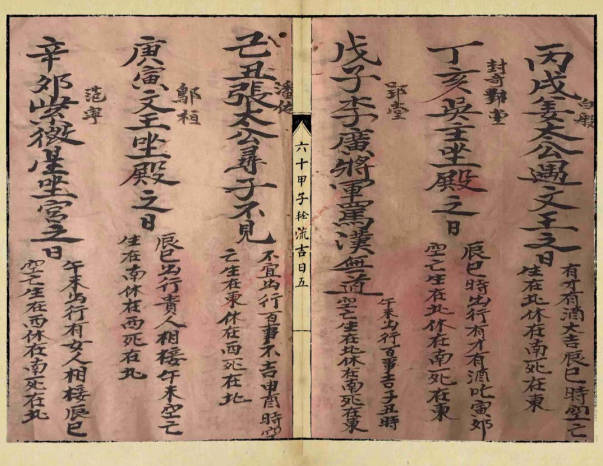 丙戌姜太公遇文王之日
有才有酒大吉辰巳時空亡
生在北休在南死在東
丁亥吳王坐殿之日
辰巳時出行有才有酒吃寅卯
空亡生在北休在南死在東
戊子李廣將軍罵漢無道
午未出行百事吉子丑時
空亡生在北休在南死在東
六十甲子 流吉日五
己丑張太公尋子不見
不宜出行百事不吉申酉時空
亡生在東休在西死在北
庚寅文王坐殿之日
鄔桓
辰巳出行貴人相接午未空亡
生在南休在西死在北
辛卯紫微星坐宮之日
范寧
午未出行有女人相接辰巳
空亡生在西休在南死在北